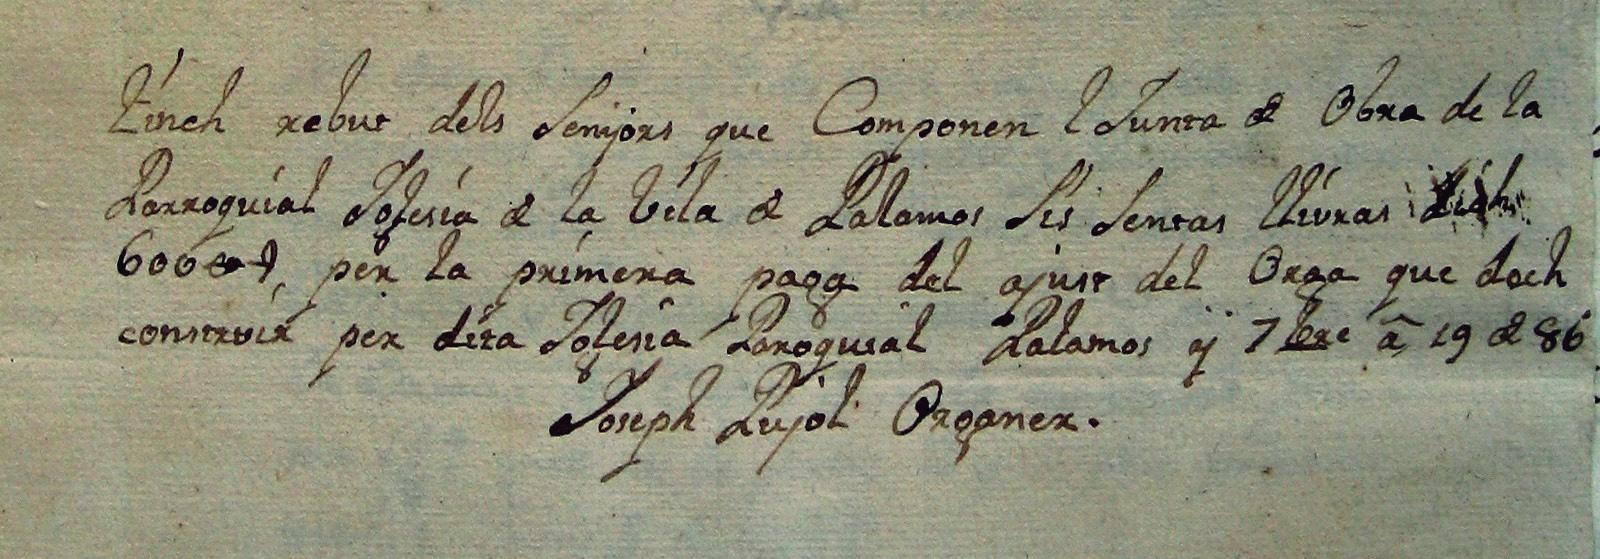 tinch rebut dels Senijors que Componen l Junta de Obra de la
Parroquial Iglesia de la Vila de Palamos Sis Sentas lliuras
600 per la primera paga del ajust del Orga que dech
construir per dita Iglesia Paroquial Palamos ÿ 7bre â 19 de 86
Joseph Pujol Organer.